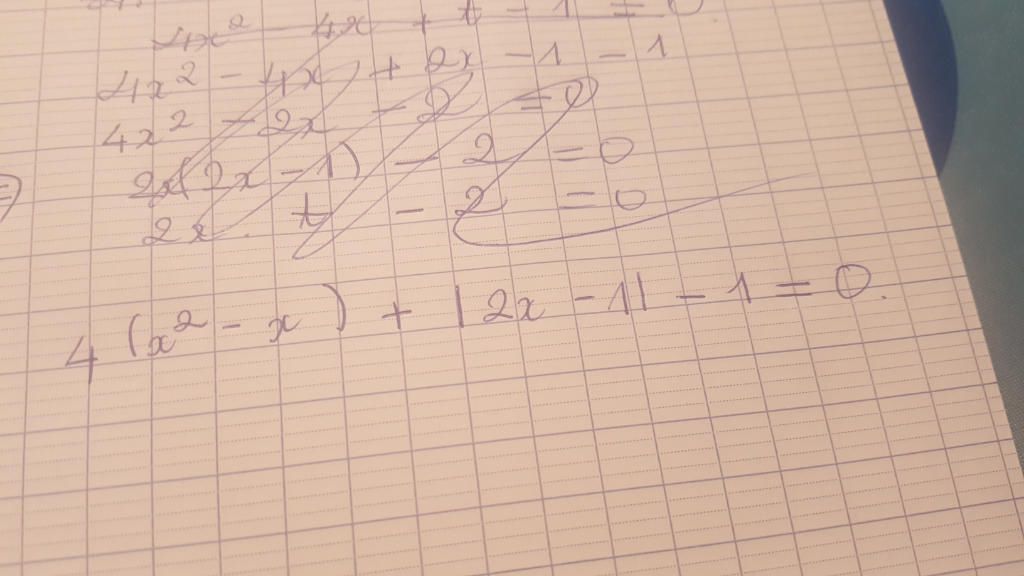 4x² - 4x + t - 1 = 0
4x² - 4x + 2x - 1 - 1
4x² - 2x - 2 = 0
2x(2x - 1) - 2 = 0
2x . t - 2 = 0
4 (x² - x) + |2x - 1| - 1 = 0.